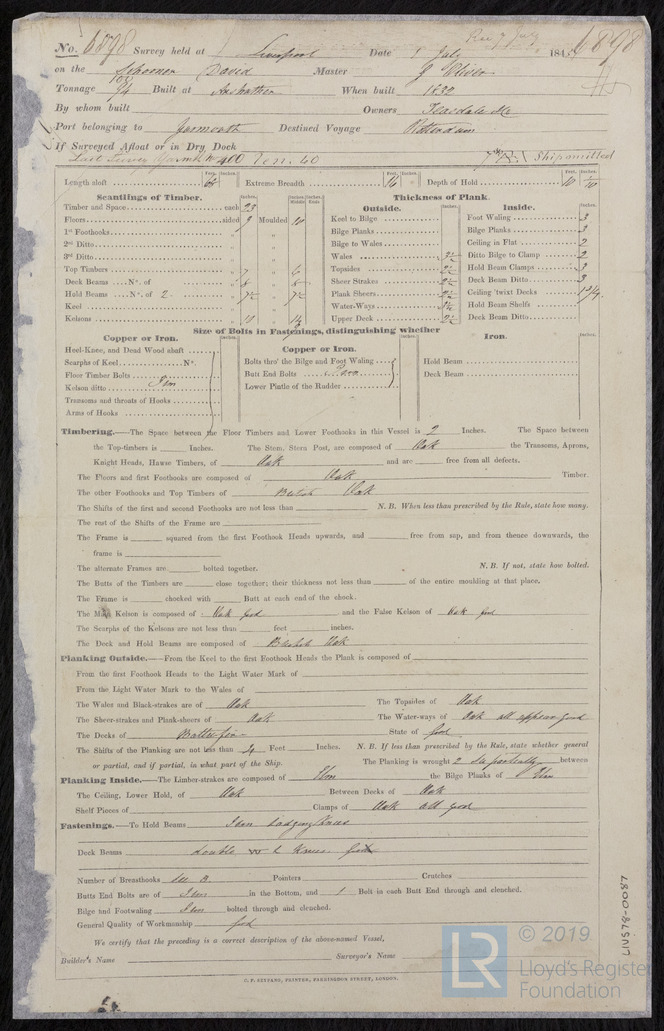 Rec 7 July
No. 6898 Survey held at Liverpool Date 1 July 184 6898
on the Schooner David Master J Oliver
Tonnage 103/94 Built at Anstruther When built 1832
By whom built Owners Teasdale &c
Port belonging to Yarmouth Destined Voyage Rotterdam
If Surveyed Afloat or in Dry Dock
Last Survey Yarmth No 400 Ship omitted
Feet. Inches. Feet. Inches. Feet. Inches.
Length aloft Extreme Breadth Depth of Hold 10
Scantlings of Timber. Thickness of Plank.
Timber and Space each 23
Floors sided 9 Moulded 10
1st Foothooks
2nd Ditto
3rd Ditto
Top Timbers 7 6
Deck Beams No. of 8 8
Hold Beams No. of 2 7½ 7½
Keel
Kelsons 10
Outside.
Keel to Bilge
Bilge Planks
Bilge to Wales
Wales
Topsides 2½
Sheer Strakes 2½
Plank Sheers 2½
Water-Ways
Upper Deck 2½
Inside.
Foot Waling 3
Bilge Planks 3
Ceiling in Flat 2
Ditto Bilge to Clamp 2
Hold Beam Clamps 3
Deck Beam Ditto 3
Ceiling 'twixt Decks 1 3/4
Hold Beam Shelfs
Deck Beam Ditto
Size of Bolts in Fastenings, distinguishing whether
Copper or Iron.
Heel-Knee, and Dead Wood abaft
Scarphs of Keel No.
Floor Timber Bolts
Kelson ditto Iron
Transoms and throats of Hooks
Arms of Hooks
Copper or Iron.
Bolts thro' the Bilge and Foot Waling
Butt End Bolts
Lower Pintle of the Rudder
Iron.
Hold Beam
Deck Beam
Timbering.—The Space between the Floor Timbers and Lower Foothooks in this Vessel is 2 Inches. The Space between
the Top-timbers is Inches. The Stem, Stern Post, are composed of Oak the Transoms, Aprons,
Knight Heads, Hawse Timbers, of Oak and are free from all defects.
The Floors and first Foothooks are composed of Oak Timber.
The other Foothooks and Top Timbers of British Oak
The Shifts of the first and second Foothooks are not less than N. B. When less than prescribed by the Rule, state how many.
The rest of the Shifts of the Frame are
The Frame is squared from the first Foothook Heads upwards, and free from sap, and from thence downwards, the
frame is
The alternate Frames are bolted together. N. B. If not, state how bolted.
The Butts of the Timbers are close together; their thickness not less than of the entire moulding at that place.
The Frame is chocked with Butt at each end of the chock.
The Main Kelson is composed of Oak good and the False Kelson of Oak good
The Scarphs of the Kelsons are not less than feet inches.
The Deck and Hold Beams are composed of British Oak
Planking Outside.—From the Keel to the first Foothook Heads the Plank is composed of
From the first Foothook Heads to the Light Water Mark of
From the Light Water Mark to the Wales of
The Wales and Black-strakes are of Oak The Topsides of Oak
The Sheer-strakes and Plank-sheers of Oak The Water-ways of Oak all appear good
The Decks of Baltic fir State of good
The Shifts of the Planking are not less than 4 Feet Inches. N. B. If less than prescribed by the Rule, state whether general
or partial, and if partial, in what part of the Ship. The Planking is wrought 2 partially between
Planking Inside.—The Limber-strakes are composed of Elm the Bilge Planks of Elm
The Ceiling, Lower Hold, of Oak Between Decks of Oak
Shelf Pieces of Clamps of Oak all good
Fastenings.—To Hold Beams Iron Lodging Knees
Deck Beams double wt L Knees
Number of Breasthooks Pointers Crutches
Butts End Bolts are of Iron in the Bottom, and 1 Bolt in each Butt End through and clenched.
Bilge and Footwaling Iron bolted through and clenched.
General Quality of Workmanship good
We certify that the preceding is a correct description of the above-named Vessel,
Builder's Name Surveyor's Name
C. F. SEYFANG, PRINTER, FARRINGDON STREET, LONDON.
LIV578-0087
LR © 2019
Lloyd's Register
Foundation